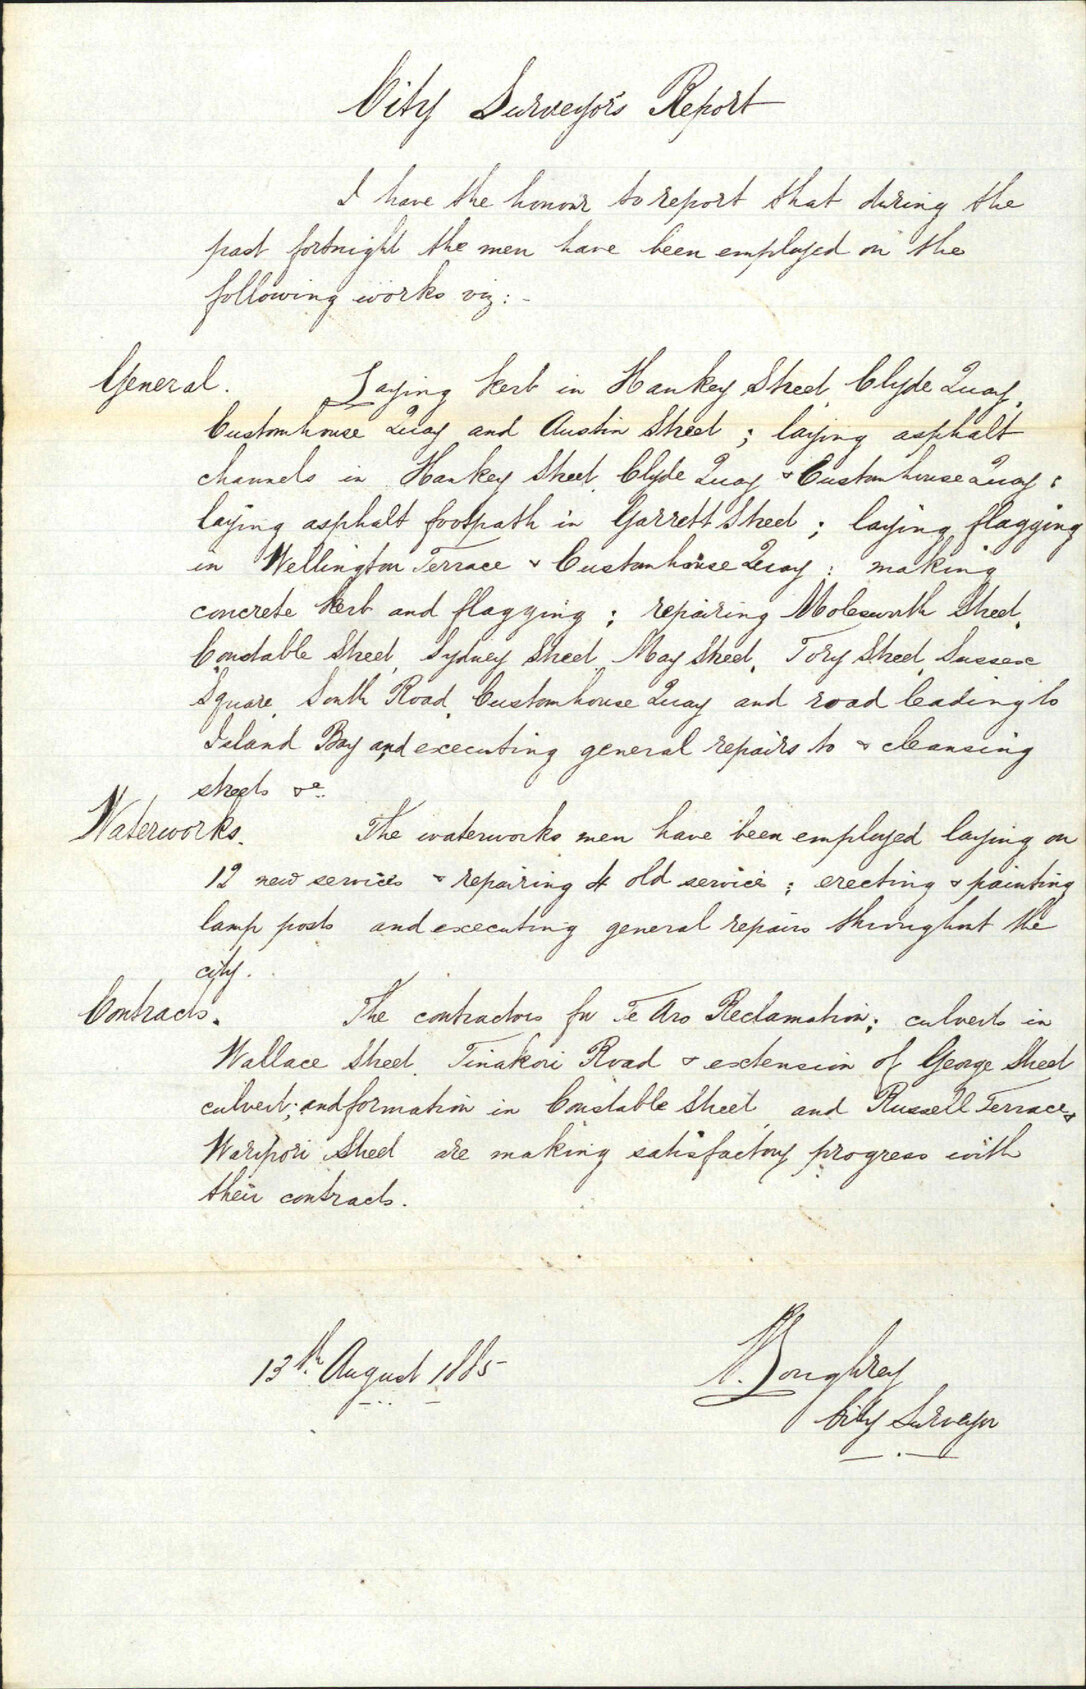 City Surveyor's Report
I have the honour to report that during the
past fortnight the men have been employed on the
following works viz: -
General. Laying kerb in Hankey Street, Clyde Quay,
Customhouse Quay and Austin Street ; laying asphalt
channels in Hankey Street, Clyde Quay & Customhouse Quay ;
laying asphalt footpath in Garrett Street ; laying flagging
in Wellington Terrace & Customhouse Quay : making
concrete kerb and flagging ; repairing Molesworth Street,
Constable Street, Sydney Street, May Street, Tory Street, Sussex
Square, South Road, Customhouse Quay and road leading to
Island Bay and executing general repairs to & cleansing
streets &c.
Waterworks. The waterworks men have been employed laying on
12 new services & repairing 4 old services ; erecting & painting
lamp posts and executing general repairs throughout the
city.
Contracts. The contractors for Te Aro Reclamation ; culverts in
Wallace Street, Tinakori Road & extension of George Street
culvert ; and formation in Constable Street and Russell Terrace &
Waripori Street are making satisfactory progress with
their contracts.
13th August 1885
Loughrey
City Surveyor